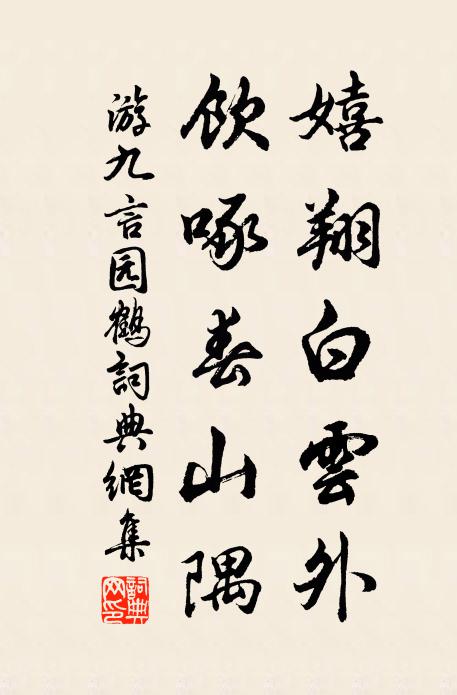 嬉翔白雲外
飲啄春山隅
游九言园鶴詞典網集
詞典网印